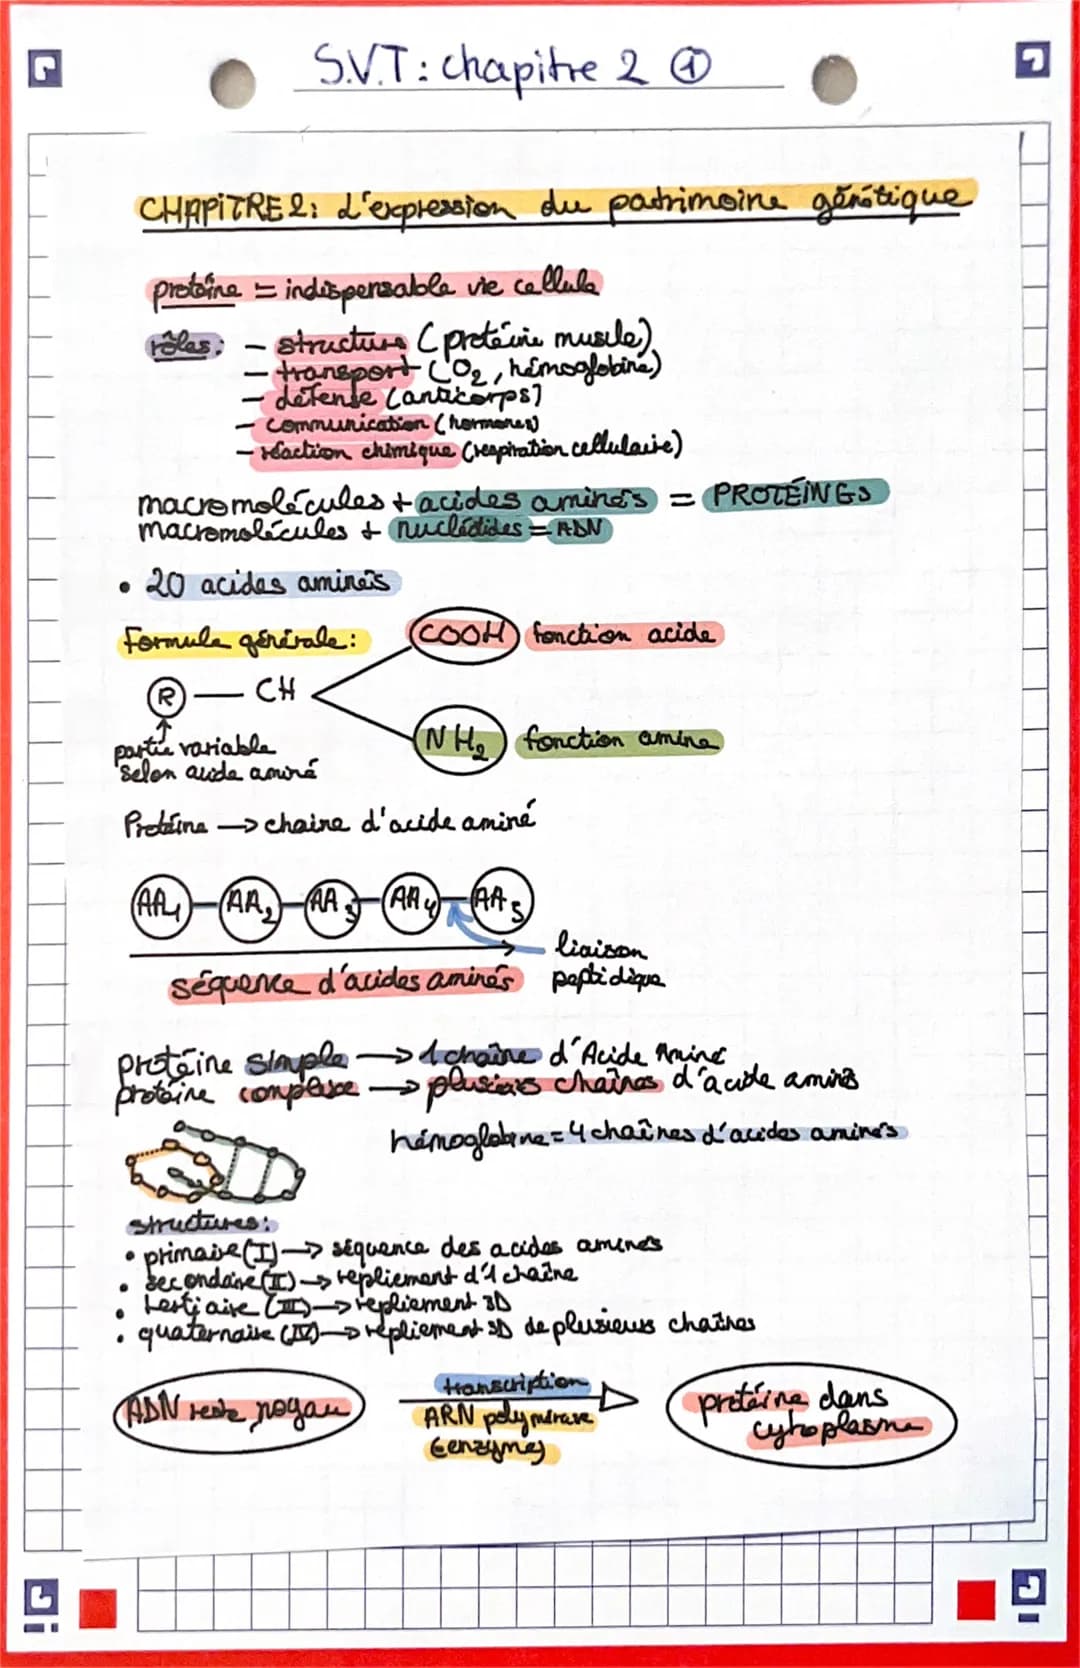 S.V.T : chapitre 2 ①
CHAPITRE 2 : L'expression du patrimoine génétique
protéine = indispensable vie cellule
rôles : - structure (protéine muscle)
- transport (O2, hémoglobine)
- défense (anticorps)
- communication (hormones)
- réaction chimique (respiration cellulaire)
macromolécules + acides aminés = PROTÉINES
macromolécules + nucléotides = ADN
• 20 acides aminés
Formule générale :
COOH fonction acide
R — CH
NH2 fonction amine
partie variable
selon acide aminé
Protéine → chaine d'acide aminé
AA1 - AA2 - AA3 - AA4 - AA5
liaison
peptidique
séquence d'acides aminés
protéine simple → 1 chaîne d'Acide Aminé
protéine complexe → plusieurs chaînes d'acide aminés
hémoglobine = 4 chaînes d'acides aminés
structures :
• primaire (I) → séquence des acides aminés
• secondaire (II) → repliement d'1 chaîne
• tertiaire (III) → repliement 3D
• quaternaire (IV) → repliement 3D de plusieurs chaînes
transcription
ADN reste noyau
ARN polymérase
(enzyme)
protéine dans
cytoplasme